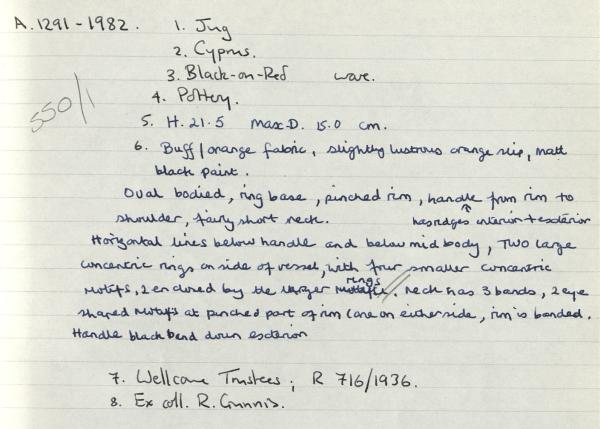 A.1291-1982. 1. Jug
2. Cyprus.
3. Black-on-Red ware.
550/1
4. Pottery.
5. H. 21.5 Max D. 15.0 cm.
6. Buff/orange fabric, slightly lustrous orange slip, matt
black paint.
Oval bodied, ring base, pinched rim, handle from rim to
shoulder, fairly short neck. has ridges interior + exterior
Horizontal lines below handle and below mid body, Two large
concentric rings on side of vessel, with four smaller concentric
motifs, 2 enclosed by the larger rings. Neck has 3 bands, 2 eye
shaped motifs at pinched part of rim (one on either side, rim is banded.
Handle black band down exterior
7. Wellcome Trustees; R 716/1936.
8. Ex coll. R. Gunnis.